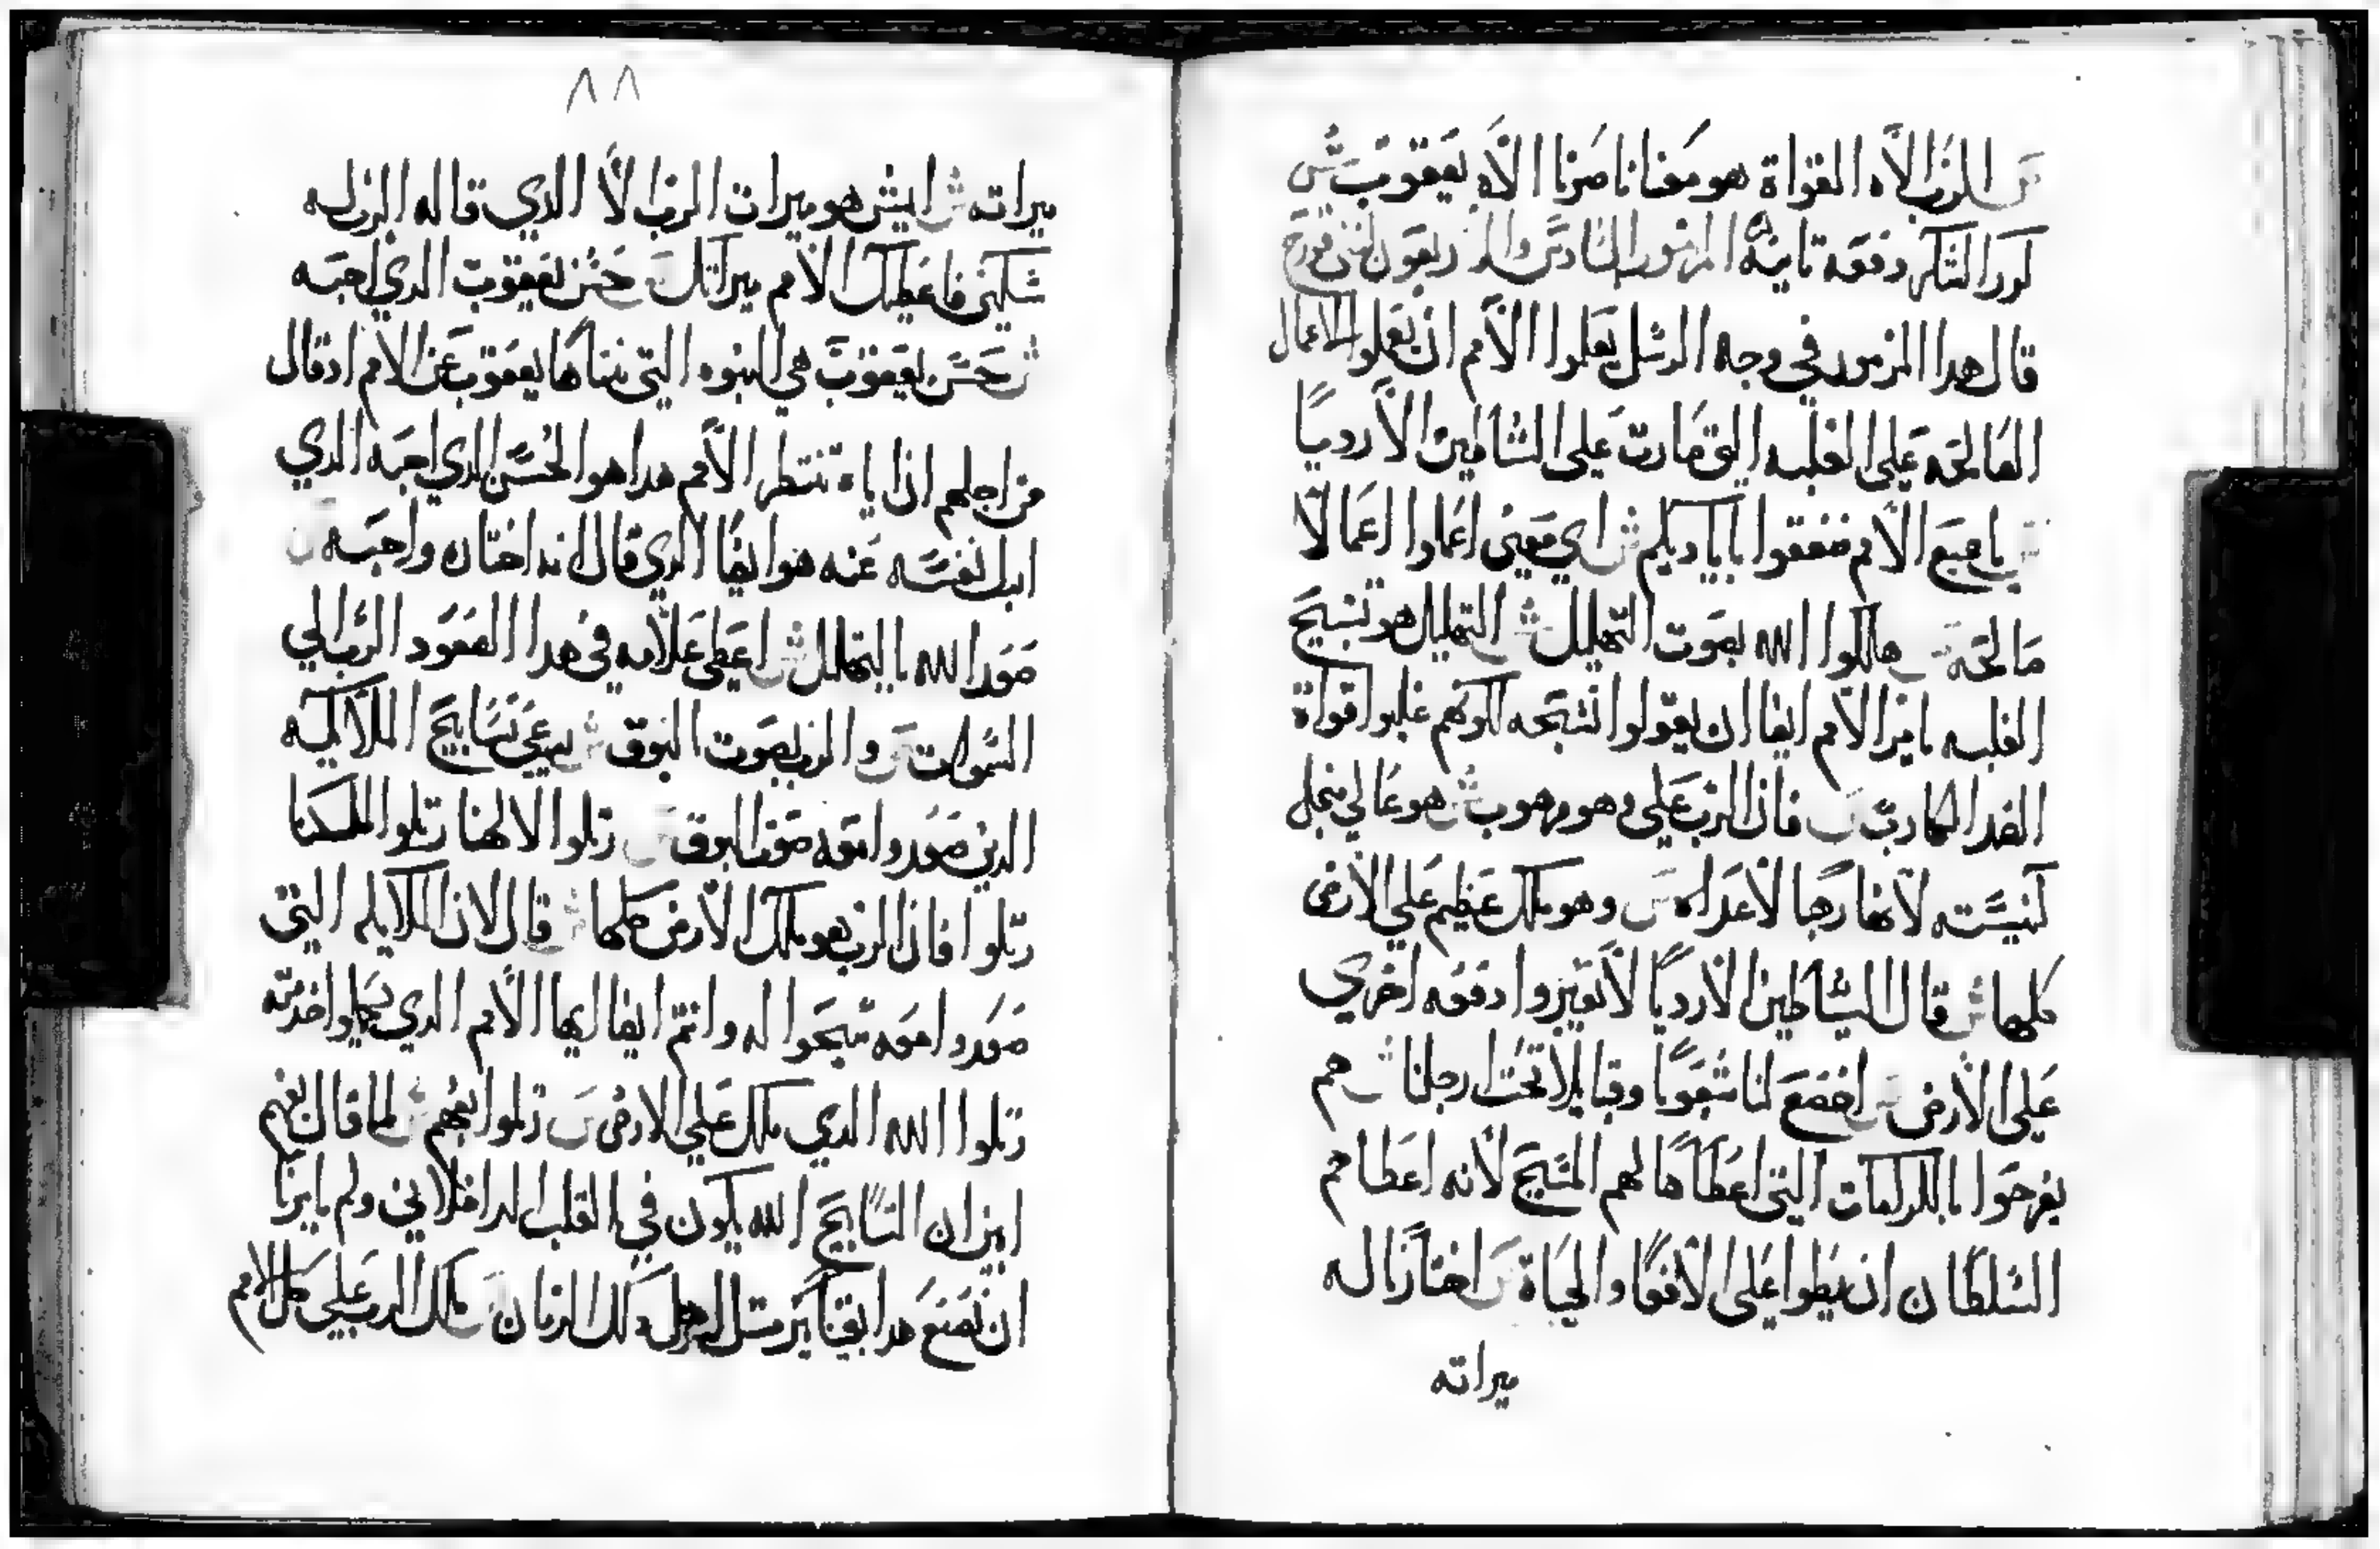 س الرب الاه القواة هو معنا ناصرنا الاه يعقوب ش
كرر التذكر دفعه تانيه المزمور السادس والاربعون لبني قورح
قال هدا المزمور في وجه الرسل يعلموا الأمم ان يعلموا الاعمال
الصالحه على الغلبه التي صارت على الشياطين الأرديا
س يا جميع الأمم صفقوا باياديكم ش اي معنى اعملوا اعمالا
صالحه س هللوا الله بصوت التهليل ش التهليل هو تسبيح
الغلبه يامر الأمم ايضا ان يقولوا تسبحه لكونهم غلبوا اقواة
الضد المحارب س فان الرب على وهو مرهوب ش هو عالي من اجل
كنيسته لانها رجا لأعداه س وهو ملك عظيم على الأرض
كلها ش قال للشياطين الأرديا لا تعبروا دفعه اخري
على الأرض س اخضع لنا شعوبا وقبايلا تحت ارجلنا ش هم
يفرحوا بالكرامات التي اعطاها لهم المسيح لأنه اعطاهم
السلطان ان يطوا على الأفعا والحياة س اختارنا له
ميراته
٨٨
ميراته ش ايش هو ميرات الرب الا الدي قاله الرب له
سلني فاعطيك الأمم ميراتك س حسن يعقوب الدي احبه
ش حسن يعقوب هي النبوه التي تنباها يعقوب عن الأمم اد قال
من اجلهم ان اياه تنتظر الأمم هدا هو الحسن الدي احبه الدي
ابدل نفسه عنه هو ايضا الدي قال انه اختاره واحبه س
صعد الله بالتهليل ش اعطى علامه في هدا الصعود الرب الي
السموات س والرب بصوت البوق ش يعني تسابيح الملايكه
الدين صعدوا معه صوت البوق س رتلوا لالهنا رتلوا لملكنا
رتلوا فان الرب هو ملك الأرض كلها ش قال لان الملايكه التي
صعدوا معه سبحوا له وانتم ايضا ايها الأمم الدي
رتلوا الله الدي ملك على الارض س رتلوا بفهم ش لما قال بفهم
ابين ان التسابيح الله يكون في القلب الداخلاني ولم يامرنا
ان نصنع هدا الزمان س ملك الرب علي كل الامم